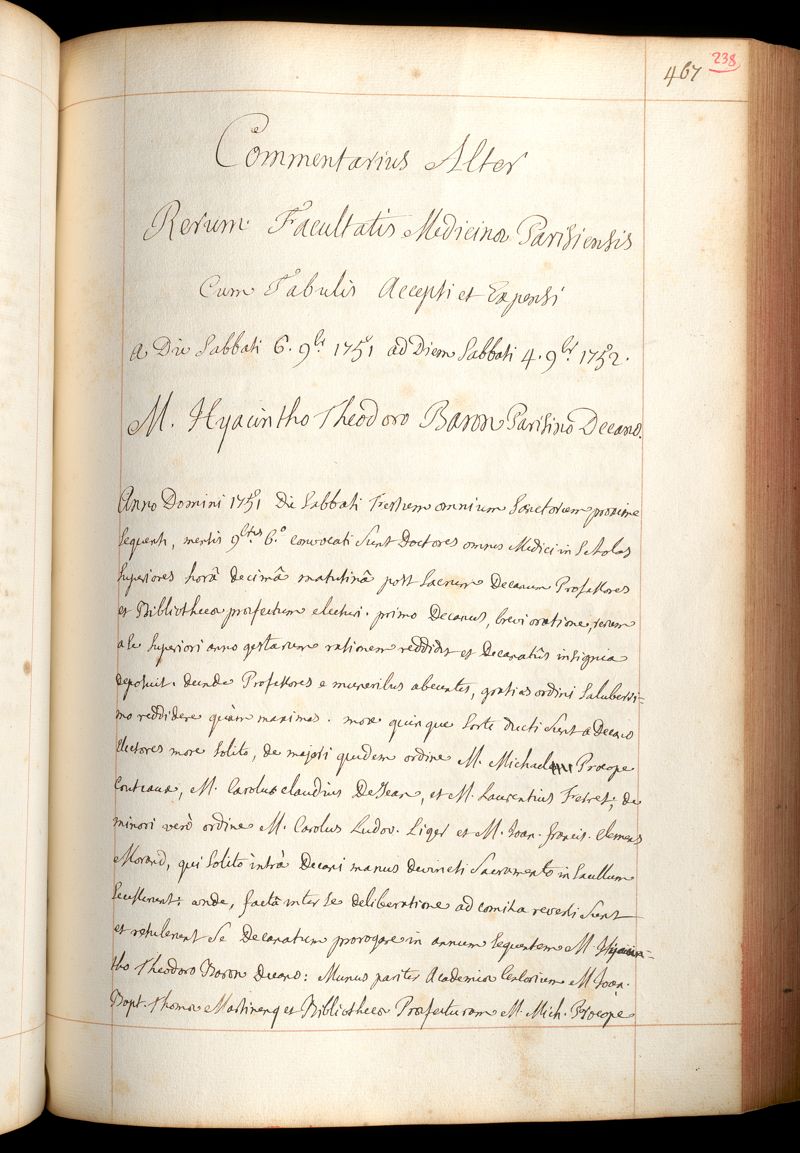 467 238
Commentarius Alter
Rerum Facultatis Medicinæ Parisiensis
Cum Tabulis Accepti et Expensi
a Die Sabbati 6. 9bris 1751 ad Diem Sabbati 4. 9bris 1752.
M. Hyacintho Theodoro Baron Parisino Decano.
Anno Domini 1751 Die Sabbati Festum omnium Sanctorum proxime
sequenti, mensis 9bris 6.° convocati sunt Doctores omnes Medici in Scholas
superiores horâ decimâ matutinâ post sacrum Decanum Professores
et Bibliothecæ præfectum electuri. primo Decanus, brevi oratione, rerum
a se superiori anno gestarum rationem reddidit et Decanatûs insignia
deposuit. deinde Professores e muneribus abeuntes, gratias ordini saluberri=
mo reddidere quàm maximas. mox quinque sorte ducti sunt a Decano
Electores more solito, de majori quidem ordine M. Michael Procope
Couteaux, M. Carolus claudius DeJean, et M. Laurentius Ferret; de
minori verò ordine M. Carolus Ludov. Liger et M. Joan. francis. Clemens
Morand, qui solito intrà Decani manus devincti Sacramento in Sacellum
secesserunt: unde, factâ inter se deliberatione ad comitia reversi sunt
et retulerunt se Decanatum prorogare in annum sequentem M. Hyacin=
tho Theodoro Baron Decano: Munus pariter Academicæ M. Joan.
Bapt. Thomæ Martinenq et Bibliothecæ Præfecturam M. Mich. Procope